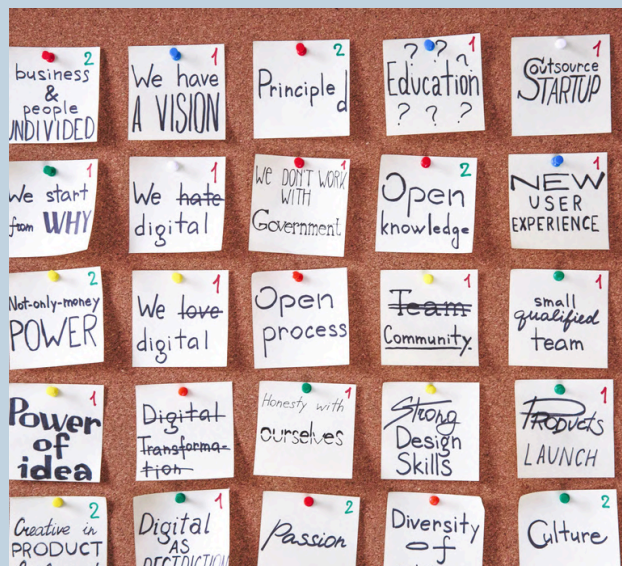 2
business
&
people
UNDIVIDED
1
We have
A VISION
2
Principled
? ? ?
1
Education
? ? ?
1
Outsource
STARTUP
1
We start
from WHY
1
We hate
digital
1
We DON'T WORK
WITH
Government
2
Open
knowledge
1
NEW
USER
EXPERIENCE
2
Not-only-money
POWER
1
We love
digital
Open
process
1
Team
Community
1
small
qualified
team
1
Power
of
idea
Digital
Transforma-
tion
1
Honesty with
ourselves
Strong
Design
Skills
1
PRODUCTS
LAUNCH
2
Creative in
PRODUCT
1
Digital
AS
2
Passion
Diversity
of
2
Culture